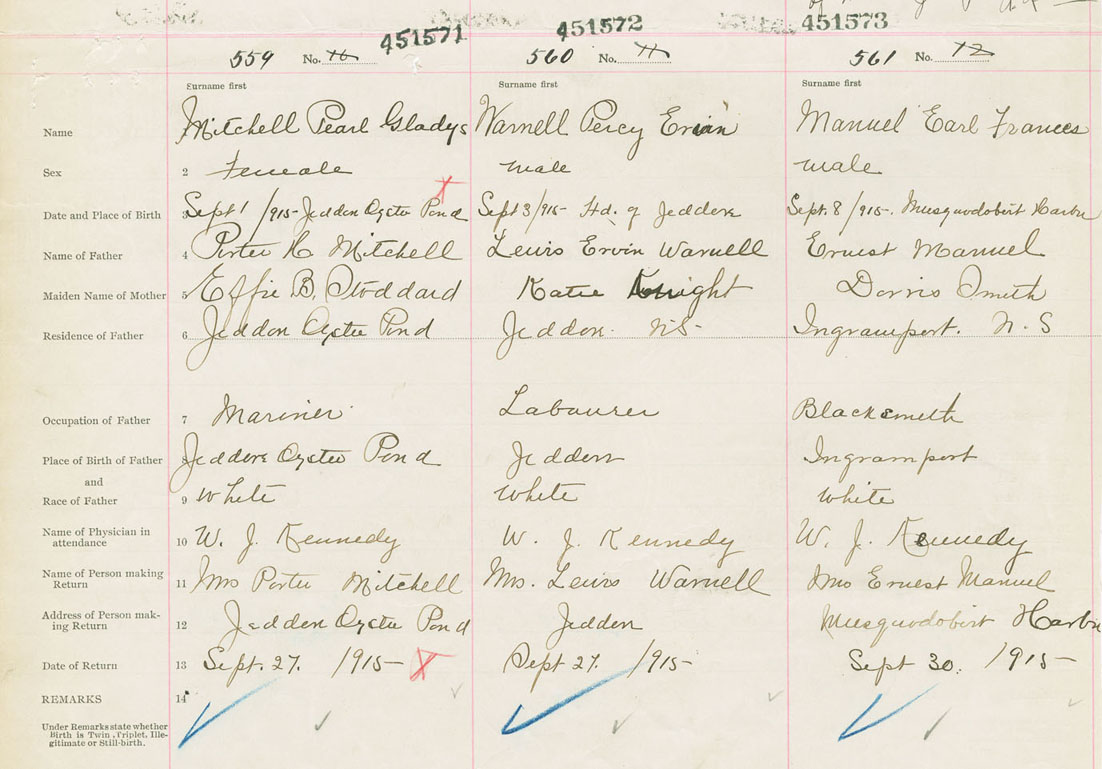 451571 451572 451573
559 No. 10 560 No. 11 561 No. 12
Surname first Surname first Surname first
Name Mitchell Pearl Gladys Warnell Percy Ervin Manuel Earl Frances
Sex 2 Female male male
Date and Place of Birth 3 Sept 1 /915- Jeddore Oyster Pond Sept 3/915- Hd. of Jeddore Sept. 8/915. Musquodobirt Harbor
Name of Father 4 Porter H Mitchell Lewis Ervin Warnell Ernest Manuel
Maiden Name of Mother 5 Effie B. Stoddard Katie Knight Dorris Smith
Residence of Father 6 Jeddore Oyster Pond Jeddore. NS- Ingramport. N. S
Occupation of Father 7 Mariner Labourer Blacksmith
Place of Birth of Father Jeddore Oyster Pond Jeddore Ingramport
and
Race of Father 9 White White White
Name of Physician in attendance 10 W. J. Kennedy W. J. Kennedy W. J. Kennedy
Name of Person making Return 11 Mrs Porter Mitchell Mrs. Lewis Warnell Mrs Ernest Manuel
Address of Person mak-ing Return 12 Jeddore Oyster Pond Jeddore Musquodobirt Harbor
Date of Return 13 Sept. 27. /915- Sept 27. /915- Sept 30. /915-
REMARKS 14
Under Remarks state whether
Birth is Twin, Triplet, Ille-
gitimate or Still-birth.